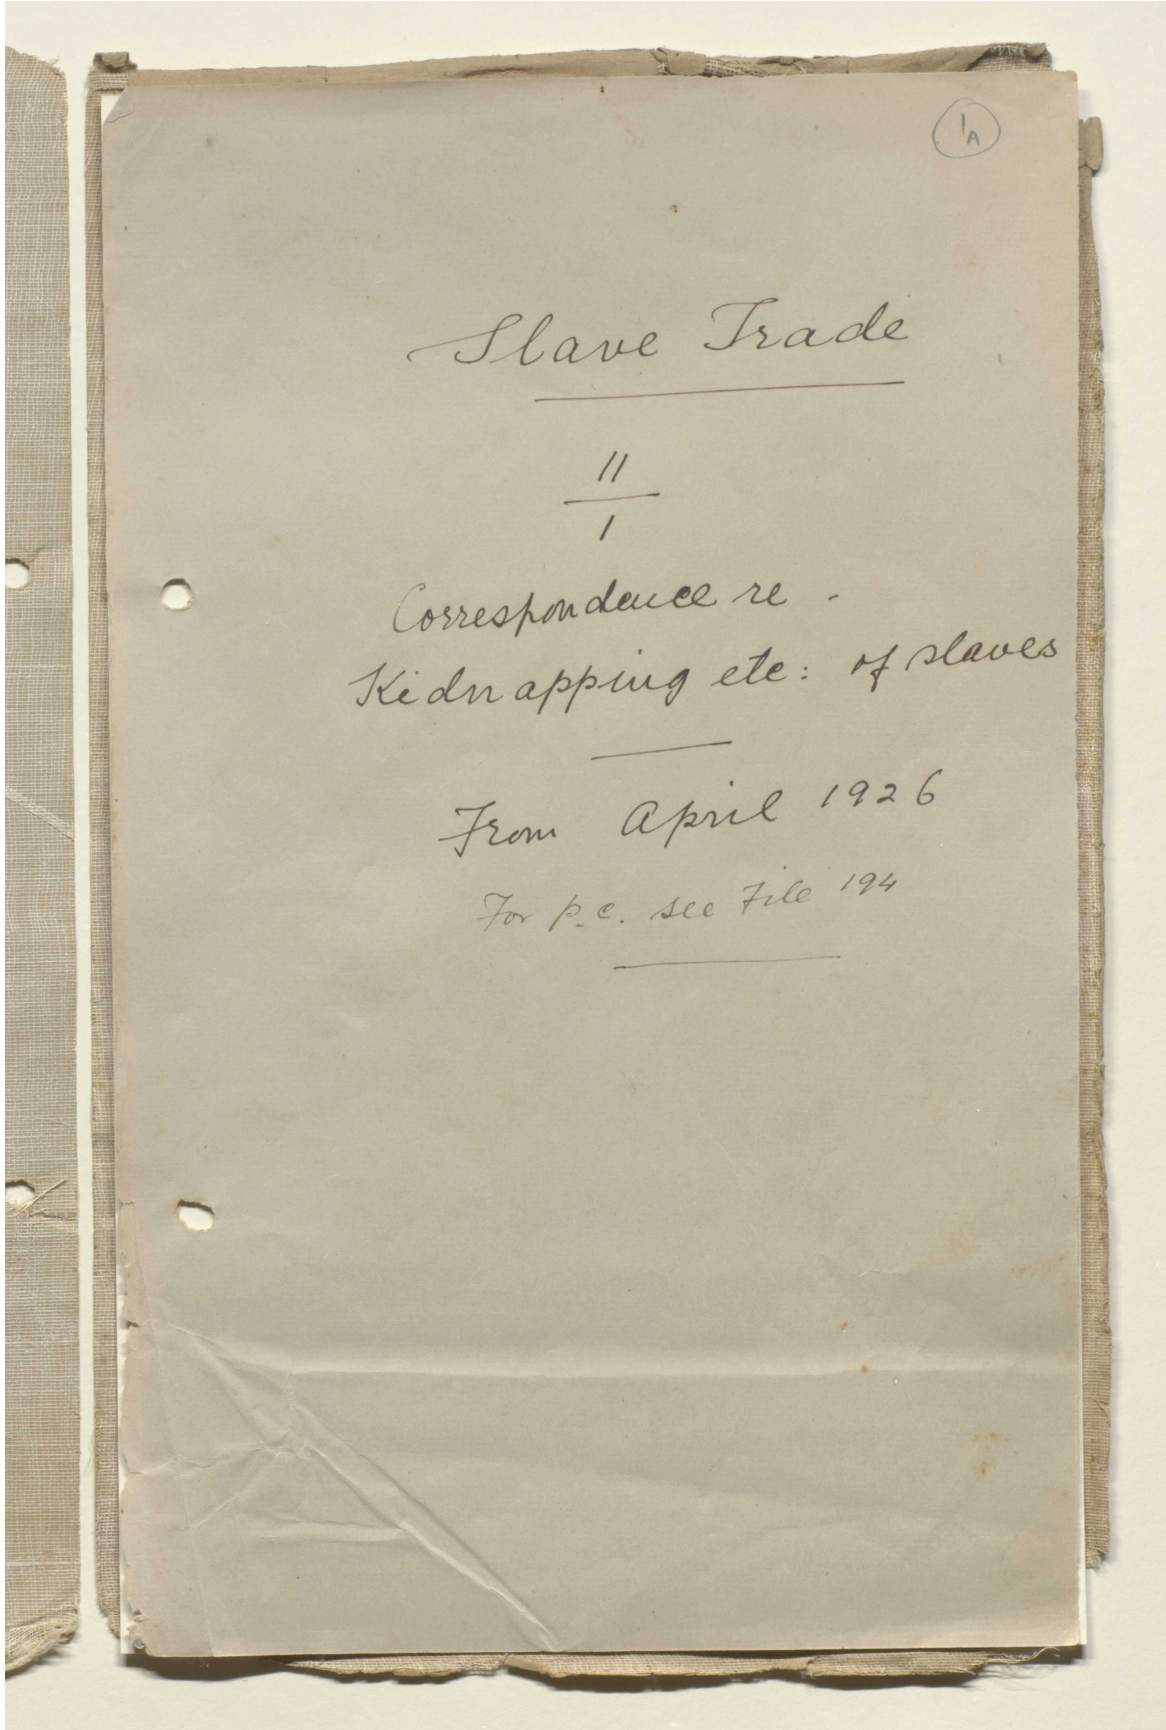 1A
Slave Trade
11
1
Correspondence re -
Kidnapping etc: of slaves
From April 1926
For p.c. see File 194